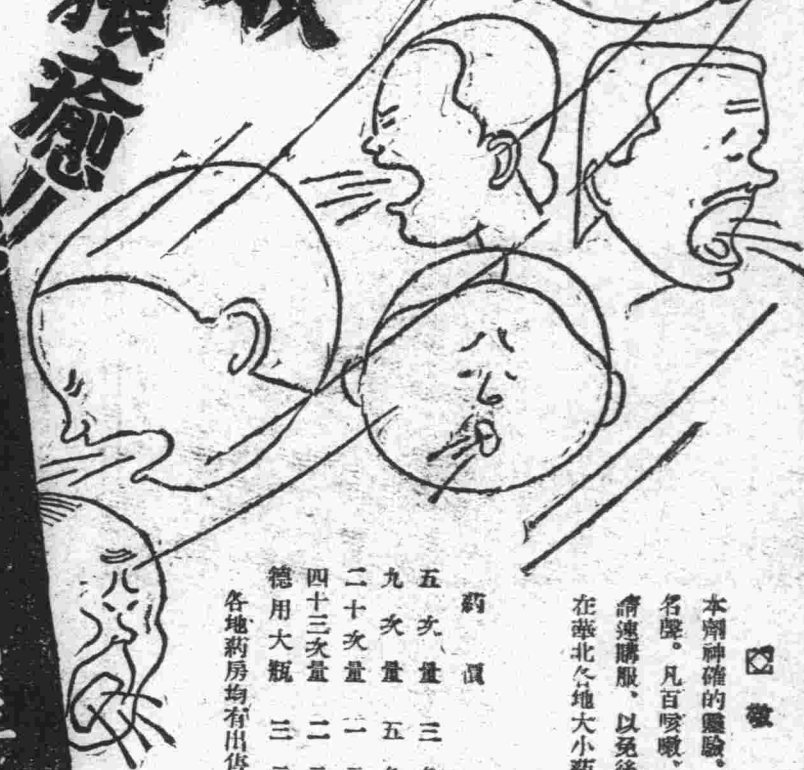 癒!!
本劑神確的靈驗。
名聲。凡百咳嗽、
請速購服、以免後
在華北各地大小药
药價
五次量 三
九次量 五
二十次量 一
四十三次量 二
德用大瓶 三
各地药房均有出售